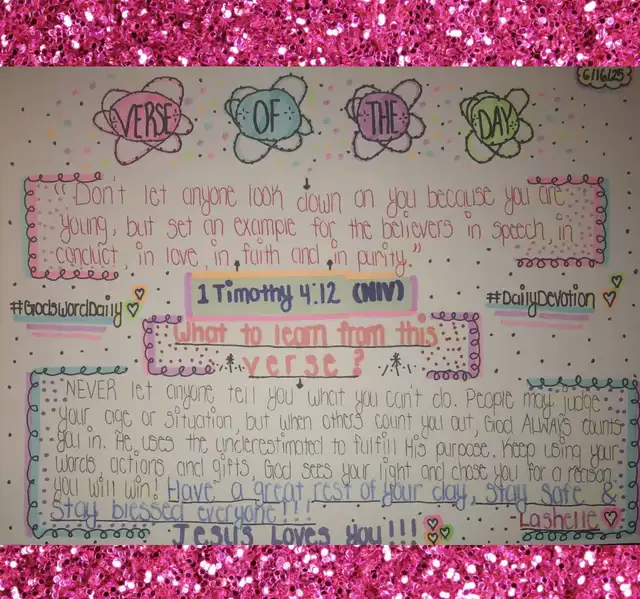 6/16/25
VERSE OF THE DAY
"Don't let anyone look down on you because you are
young, but set an example for the believers in speech, in
conduct, in love, in faith and in purity."
1 Timothy 4:12 (NIV)
#GodsWordDaily
#DailyDevotion
What to learn from this
verse?
NEVER let anyone tell you what you can't do. People may judge
your age or situation, but when others count you out, God ALWAYS counts
you in. He uses the underestimated to fulfill His purpose. Keep using your
words, actions, and gifts. God sees your light and chose you for a reason.
You will win! Have a great rest of your day, stay safe &
stay blessed everyone!!!
Lashelle
Jesus Loves you!!!